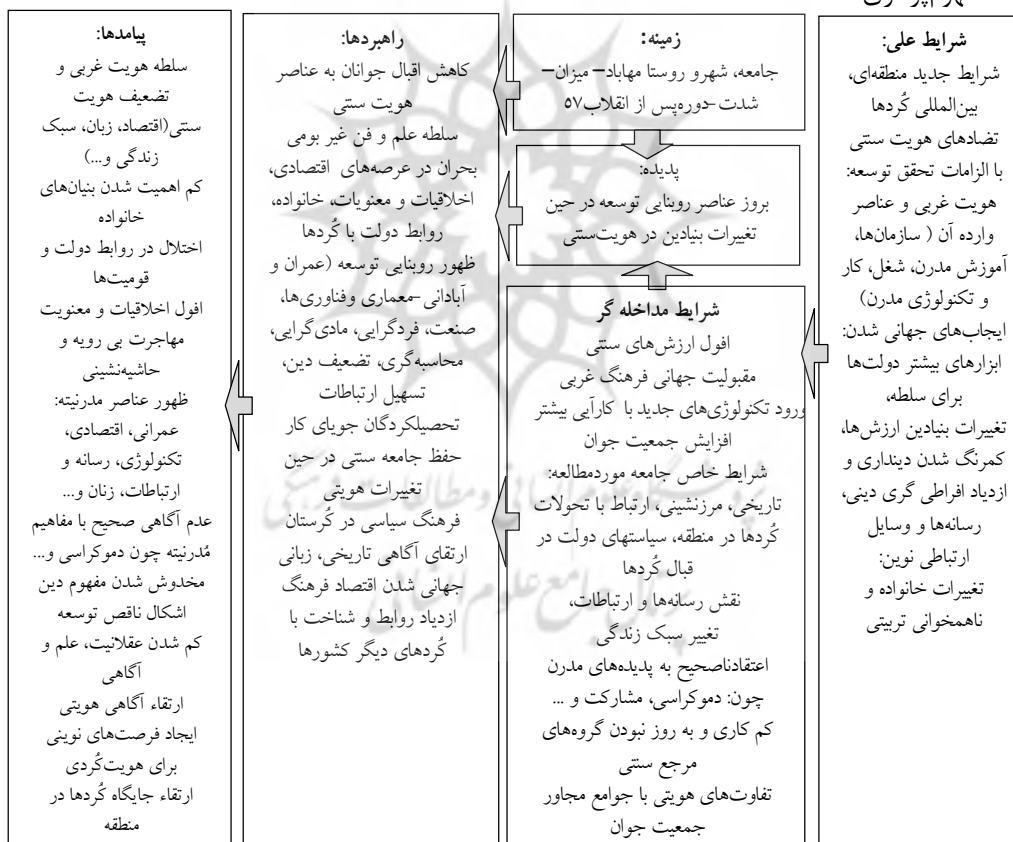 شرایط علی:
شرایط جدید منطقه‌ای،
بین‌المللی کُردها
تضادهای هویت سنتی
با الزامات تحقق توسعه:
هویت غربی و عناصر
وارده آن ( سازمان‌ها،
آموزش مدرن، شغل، کار
و تکنولوژی مدرن)
ایجاب‌های جهانی شدن:
ابزارهای بیشتر دولت‌ها
برای سلطه،
تغییرات بنیادین ارزش‌ها،
کمرنگ شدن دینداری و
ازدیاد افراطی گری دینی،
رسانه‌ها و وسایل
ارتباطی نوین:
تغییرات خانواده و
ناهمخوانی تربیتی
زمینه:
جامعه، شهرو روستا مهاباد– میزان–
شدت-دوره‌پس از انقلاب۵۷
پدیده:
بروز عناصر روبنایی توسعه در حین
تغییرات بنیادین در هویت‌سنتی
شرایط مداخله گر
افول ارزش‌های سنتی
مقبولیت جهانی فرهنگ غربی
ورود تکنولوژی‌های جدید با کارآیی بیشتر
افزایش جمعیت جوان
شرایط خاص جامعه موردمطالعه:
تاریخی، مرزنشینی، ارتباط با تحولات
کُردها در منطقه، سیاستهای دولت در
قبال کُردها
نقش رسانه‌ها و ارتباطات،
تغییر سبک زندگی
اعتقادناصحیح به پدیده‌های مدرن
چون: دموکراسی، مشارکت و ...
کم کاری و به روز نبودن گروه‌های
مرجع سنتی
تفاوت‌های هویتی با جوامع مجاور
جمعیت جوان
راهبردها:
کاهش اقبال جوانان به عناصر
هویت سنتی
سلطه علم و فن غیر بومی
بحران در عرصه‌های اقتصادی،
اخلاقیات و معنویات، خانواده،
روابط دولت با کُردها
ظهور روبنایی توسعه (عمران و
آبادانی-معماری وفناوری‌ها،
صنعت، فردگرایی، مادی‌گرایی،
محاسبه‌گری، تضعیف دین،
تسهیل ارتباطات
تحصیلکردگان جویای کار
حفظ جامعه سنتی در حین
تغییرات هویتی
فرهنگ سیاسی در کُرستان
ارتقای آگاهی تاریخی، زبانی
جهانی شدن اقتصاد فرهنگ
ازدیاد روابط و شناخت با
کُردهای دیگر کشورها
پیامدها:
سلطه هویت غربی و
تضعیف هویت
سنتی(اقتصاد، زبان، سبک
زندگی و...)
کم اهمیت شدن بنیان‌های
خانواده
اختلال در روابط دولت و
قومیت‌ها
افول اخلاقیات و معنویت
مهاجرت بی رویه و
حاشیه‌نشینی
ظهور عناصر مدرنیته:
عمرانی، اقتصادی،
تکنولوژی، رسانه و
ارتباطات، زنان و...
عدم آگاهی صحیح با مفاهیم
مُدرنیته چون دموکراسی و...
مخدوش شدن مفهوم دین
اشکال ناقص توسعه
کم شدن عقلانیت، علم و
آگاهی
ارتقاء آگاهی هویتی
ایجاد فرصت‌های نوینی
برای هویت‌کُردی
ارتقاء جایگاه کُردها در
منطقه
پژوهشگاه علوم انسانی و مطالعات فرهنگی
پرتال جامع علوم انسانی